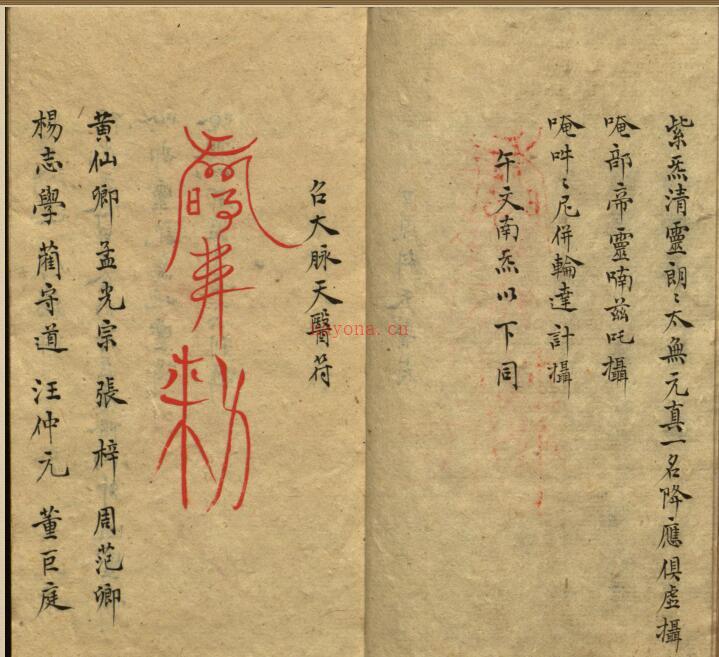 紫炁清靈朗〻太無元真一名降應俱虛攝
唵部帝靈喃兹吒攝
唵吽〻尼併輪達計攝
午文南炁以下同
召大脉天醫符
黄仙卿孟光宗張梓周范卿
楊志學藺守道汪仲元董巨庭